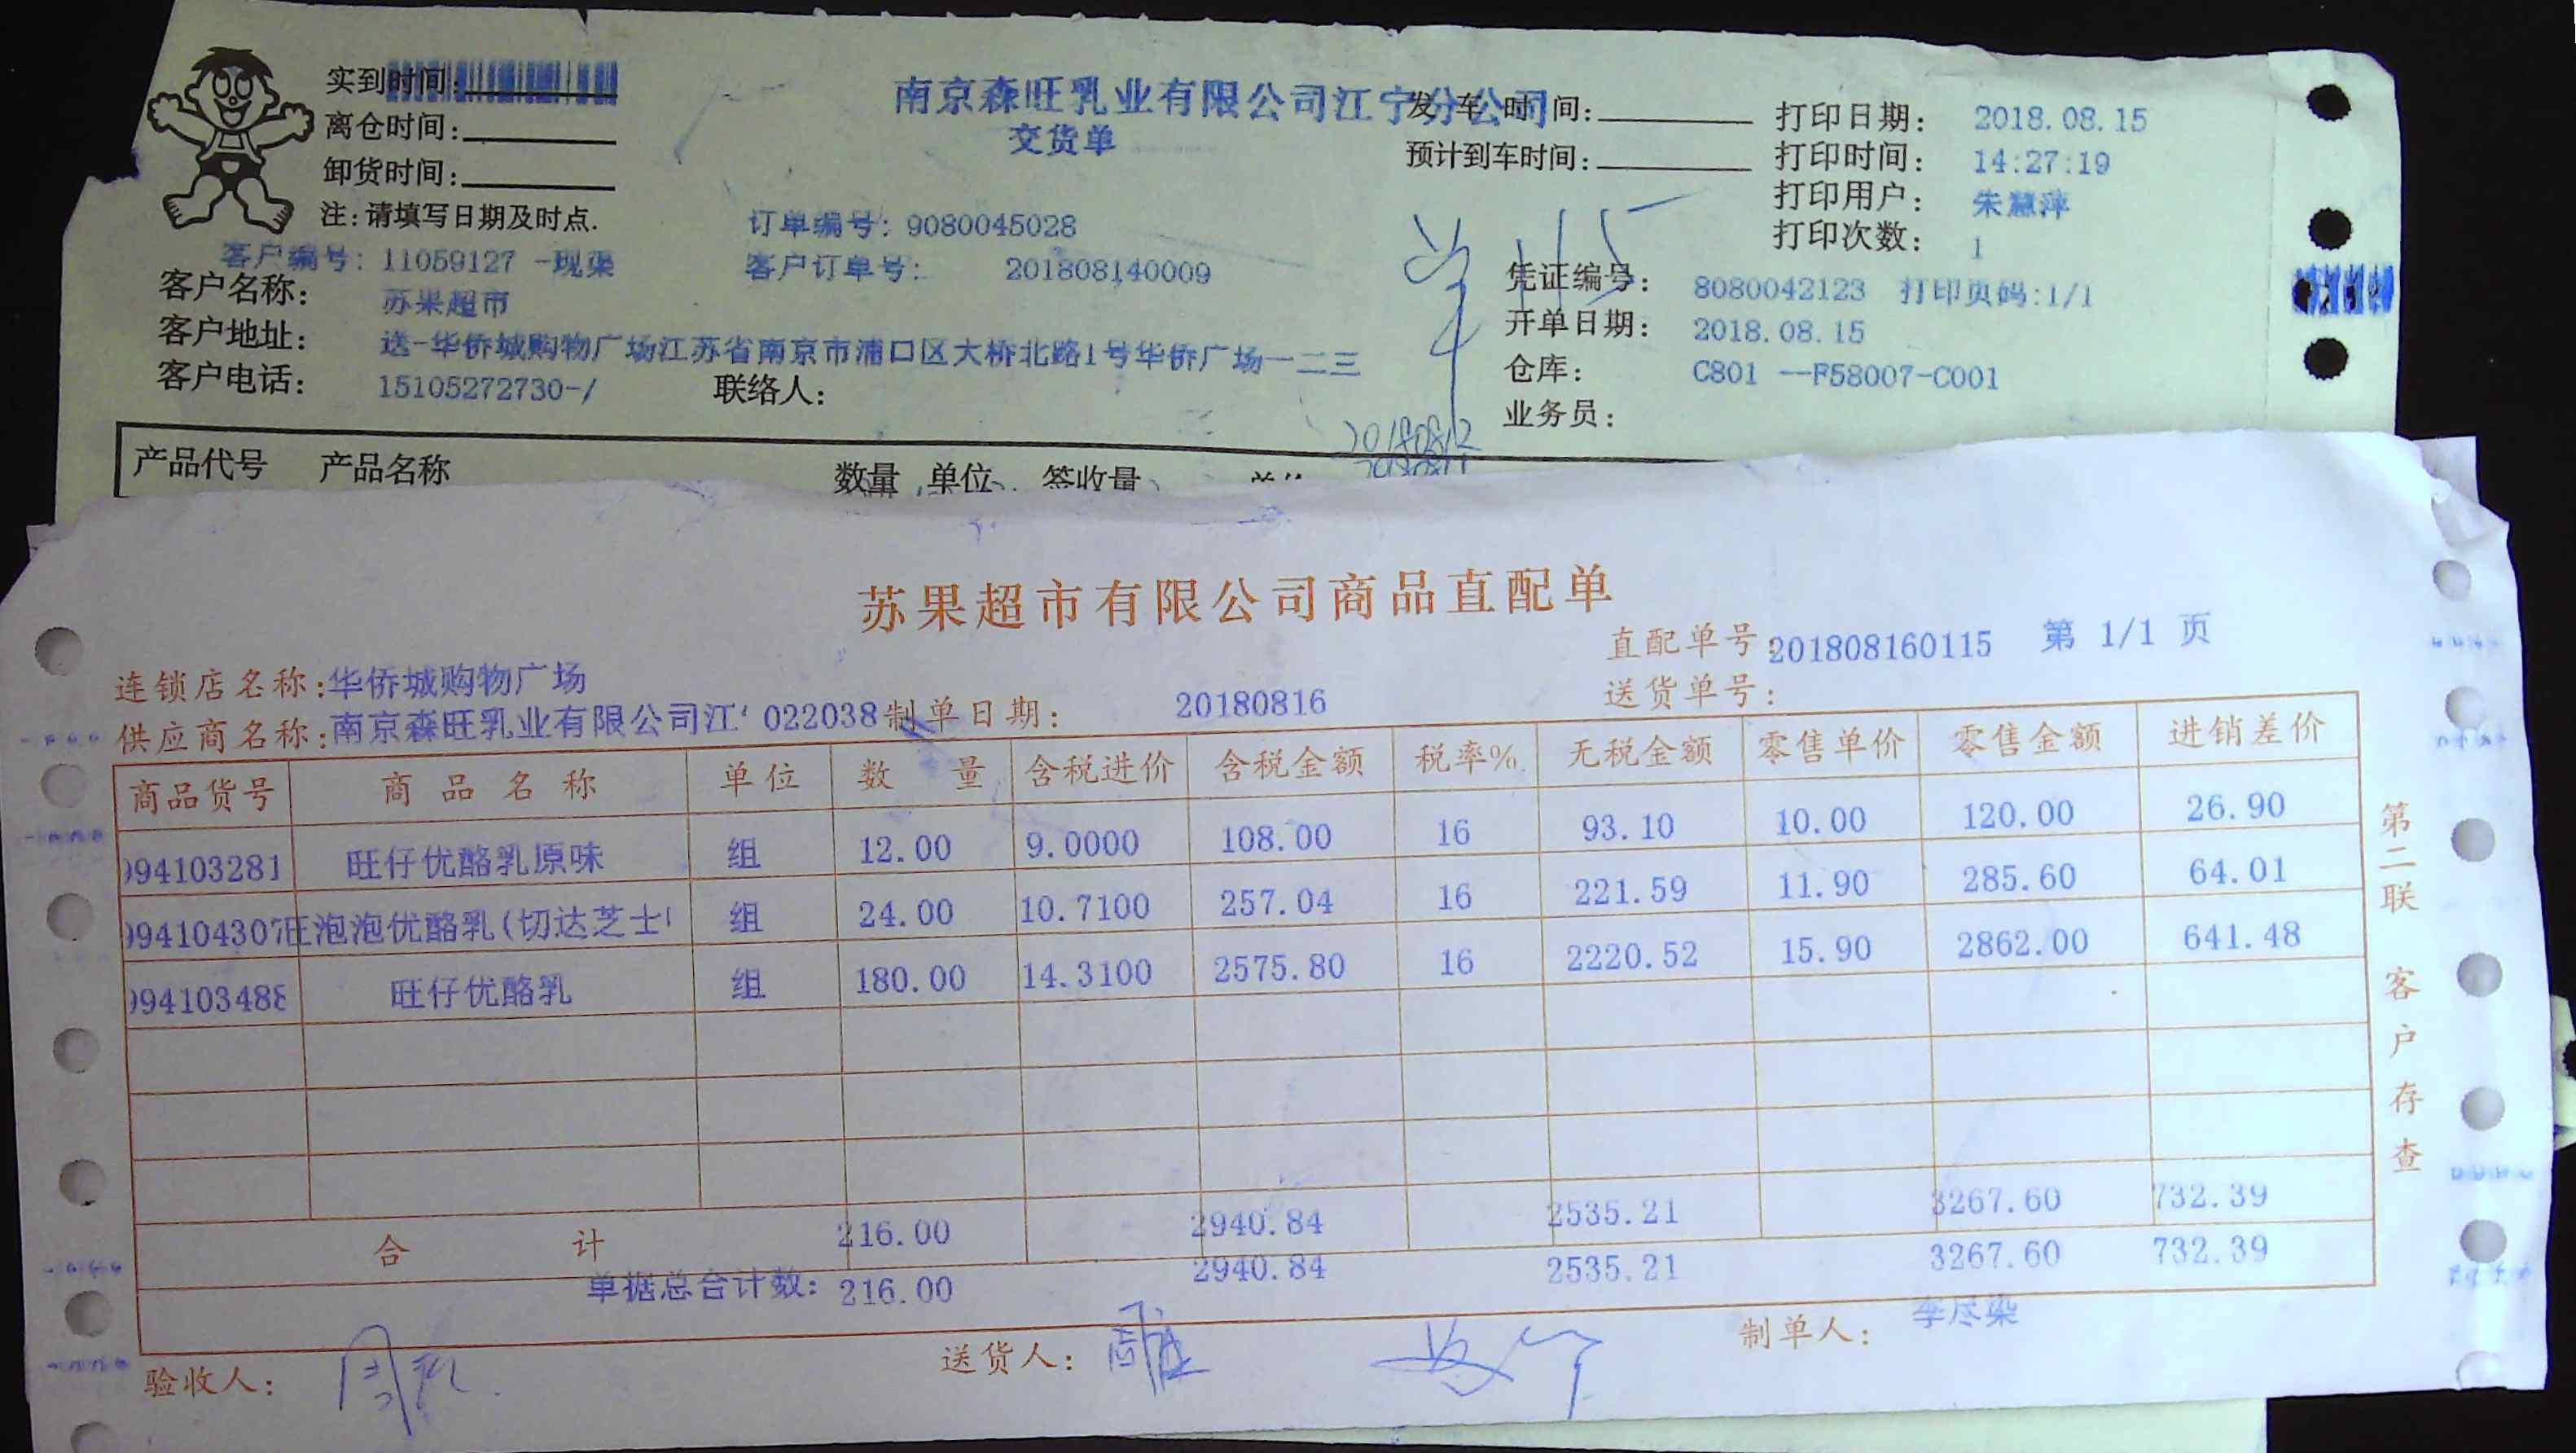 实到时间:
离仓时间:
卸货时间:
注:请填写日期及时点.
南京森旺乳业有限公司江宁分公司
交货单
发车时间:
预计到车时间:
打印日期: 2018.08.15
打印时间: 14:27:19
打印用户: 朱慧萍
打印次数: 1
订单编号: 9080045028
客户编号: 11059127 -现渠
客户订单号: 201808140009
客户名称: 苏果超市
凭证编号: 8080042123 打印页码:1/1
客户地址: 送-华侨城购物广场江苏省南京市浦口区大桥北路1号华侨广场一二三
开单日期: 2018.08.15
客户电话: 15105272730-/ 联络人:
仓库: C801 --F58007-C001
业务员:
20180812
产品代号 产品名称 数量 单位 签收量
苏果超市有限公司商品直配单
直配单号: 201808160115 第 1/1 页
连锁店名称:华侨城购物广场
送货单号:
供应商名称:南京森旺乳业有限公司江 022038 制单日期: 20180816
商品货号 商品名称 单位 数量 含税进价 含税金额 税率% 无税金额 零售单价 零售金额 进销差价
994103281 旺仔优酪乳原味 组 12.00 9.0000 108.00 16 93.10 10.00 120.00 26.90
994104307 旺泡泡优酪乳(切达芝士 组 24.00 10.7100 257.04 16 221.59 11.90 285.60 64.01
994103488 旺仔优酪乳 组 180.00 14.3100 2575.80 16 2220.52 15.90 2862.00 641.48
合计 216.00 2940.84 2535.21 3267.60 732.39
单据总合计数: 216.00 2940.84 2535.21 3267.60 732.39
验收人:
送货人:
制单人: 李尽染
第二联 客户存查